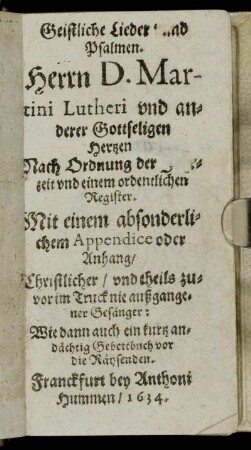 Geistliche Lieder
Psalmen.
Herrn D. Mar-
tini Lutheri vnd an-
derer Gottseligen
Hertzen
Nach Ordnung der
zeit vnd einem ordentlichen
Register.
Mit einem absonderli-
chem Appendice oder
Anhang/
Christlicher / vnd theils zu-
vor im Truck nie außgange-
ner Gesänger:
Wie dann auch ein kurtz an-
dächtig Gebettbuch vor
die Räysenden.
Franckfurt bey Anthoni
Hummen/ 1634.